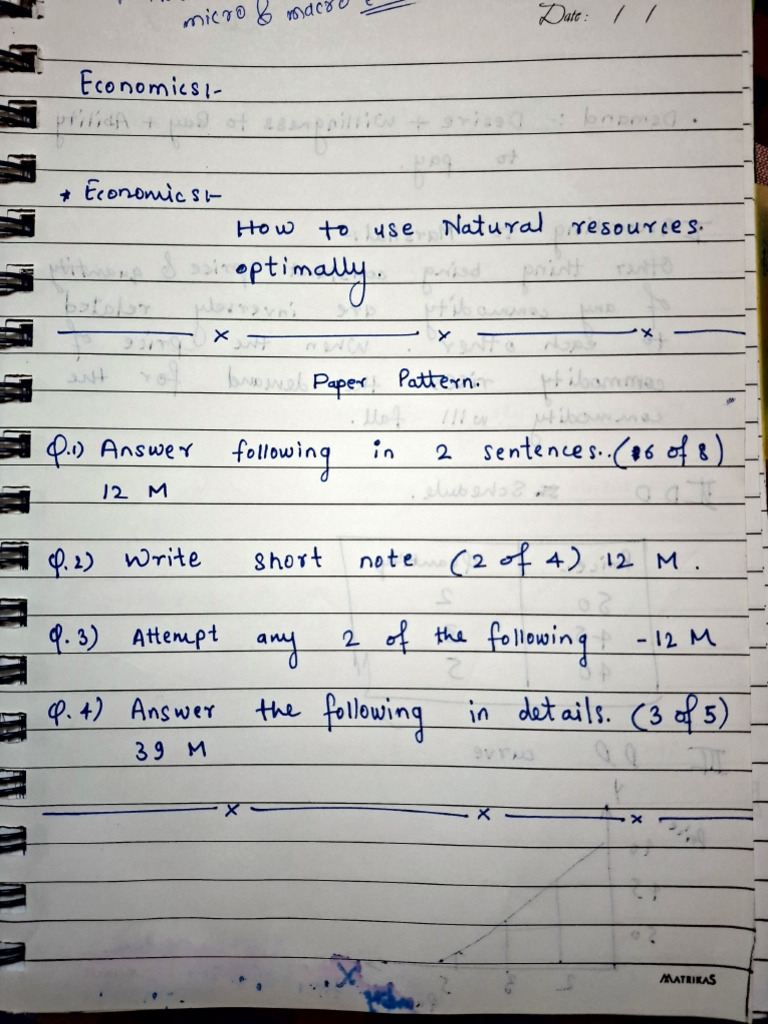 micro & macro
Date: / /
Economics:-
* Economics:-
How to use Natural resources.
optimally.
x x x
Paper Pattern.
Q.1) Answer following in 2 sentences..(6 of 8)
12 M
Q.2) Write short note (2 of 4) 12 M.
Q.3) Attempt any 2 of the following - 12 M
Q.4) Answer the following in details. (3 of 5)
39 M
x x x
MATRIKAS